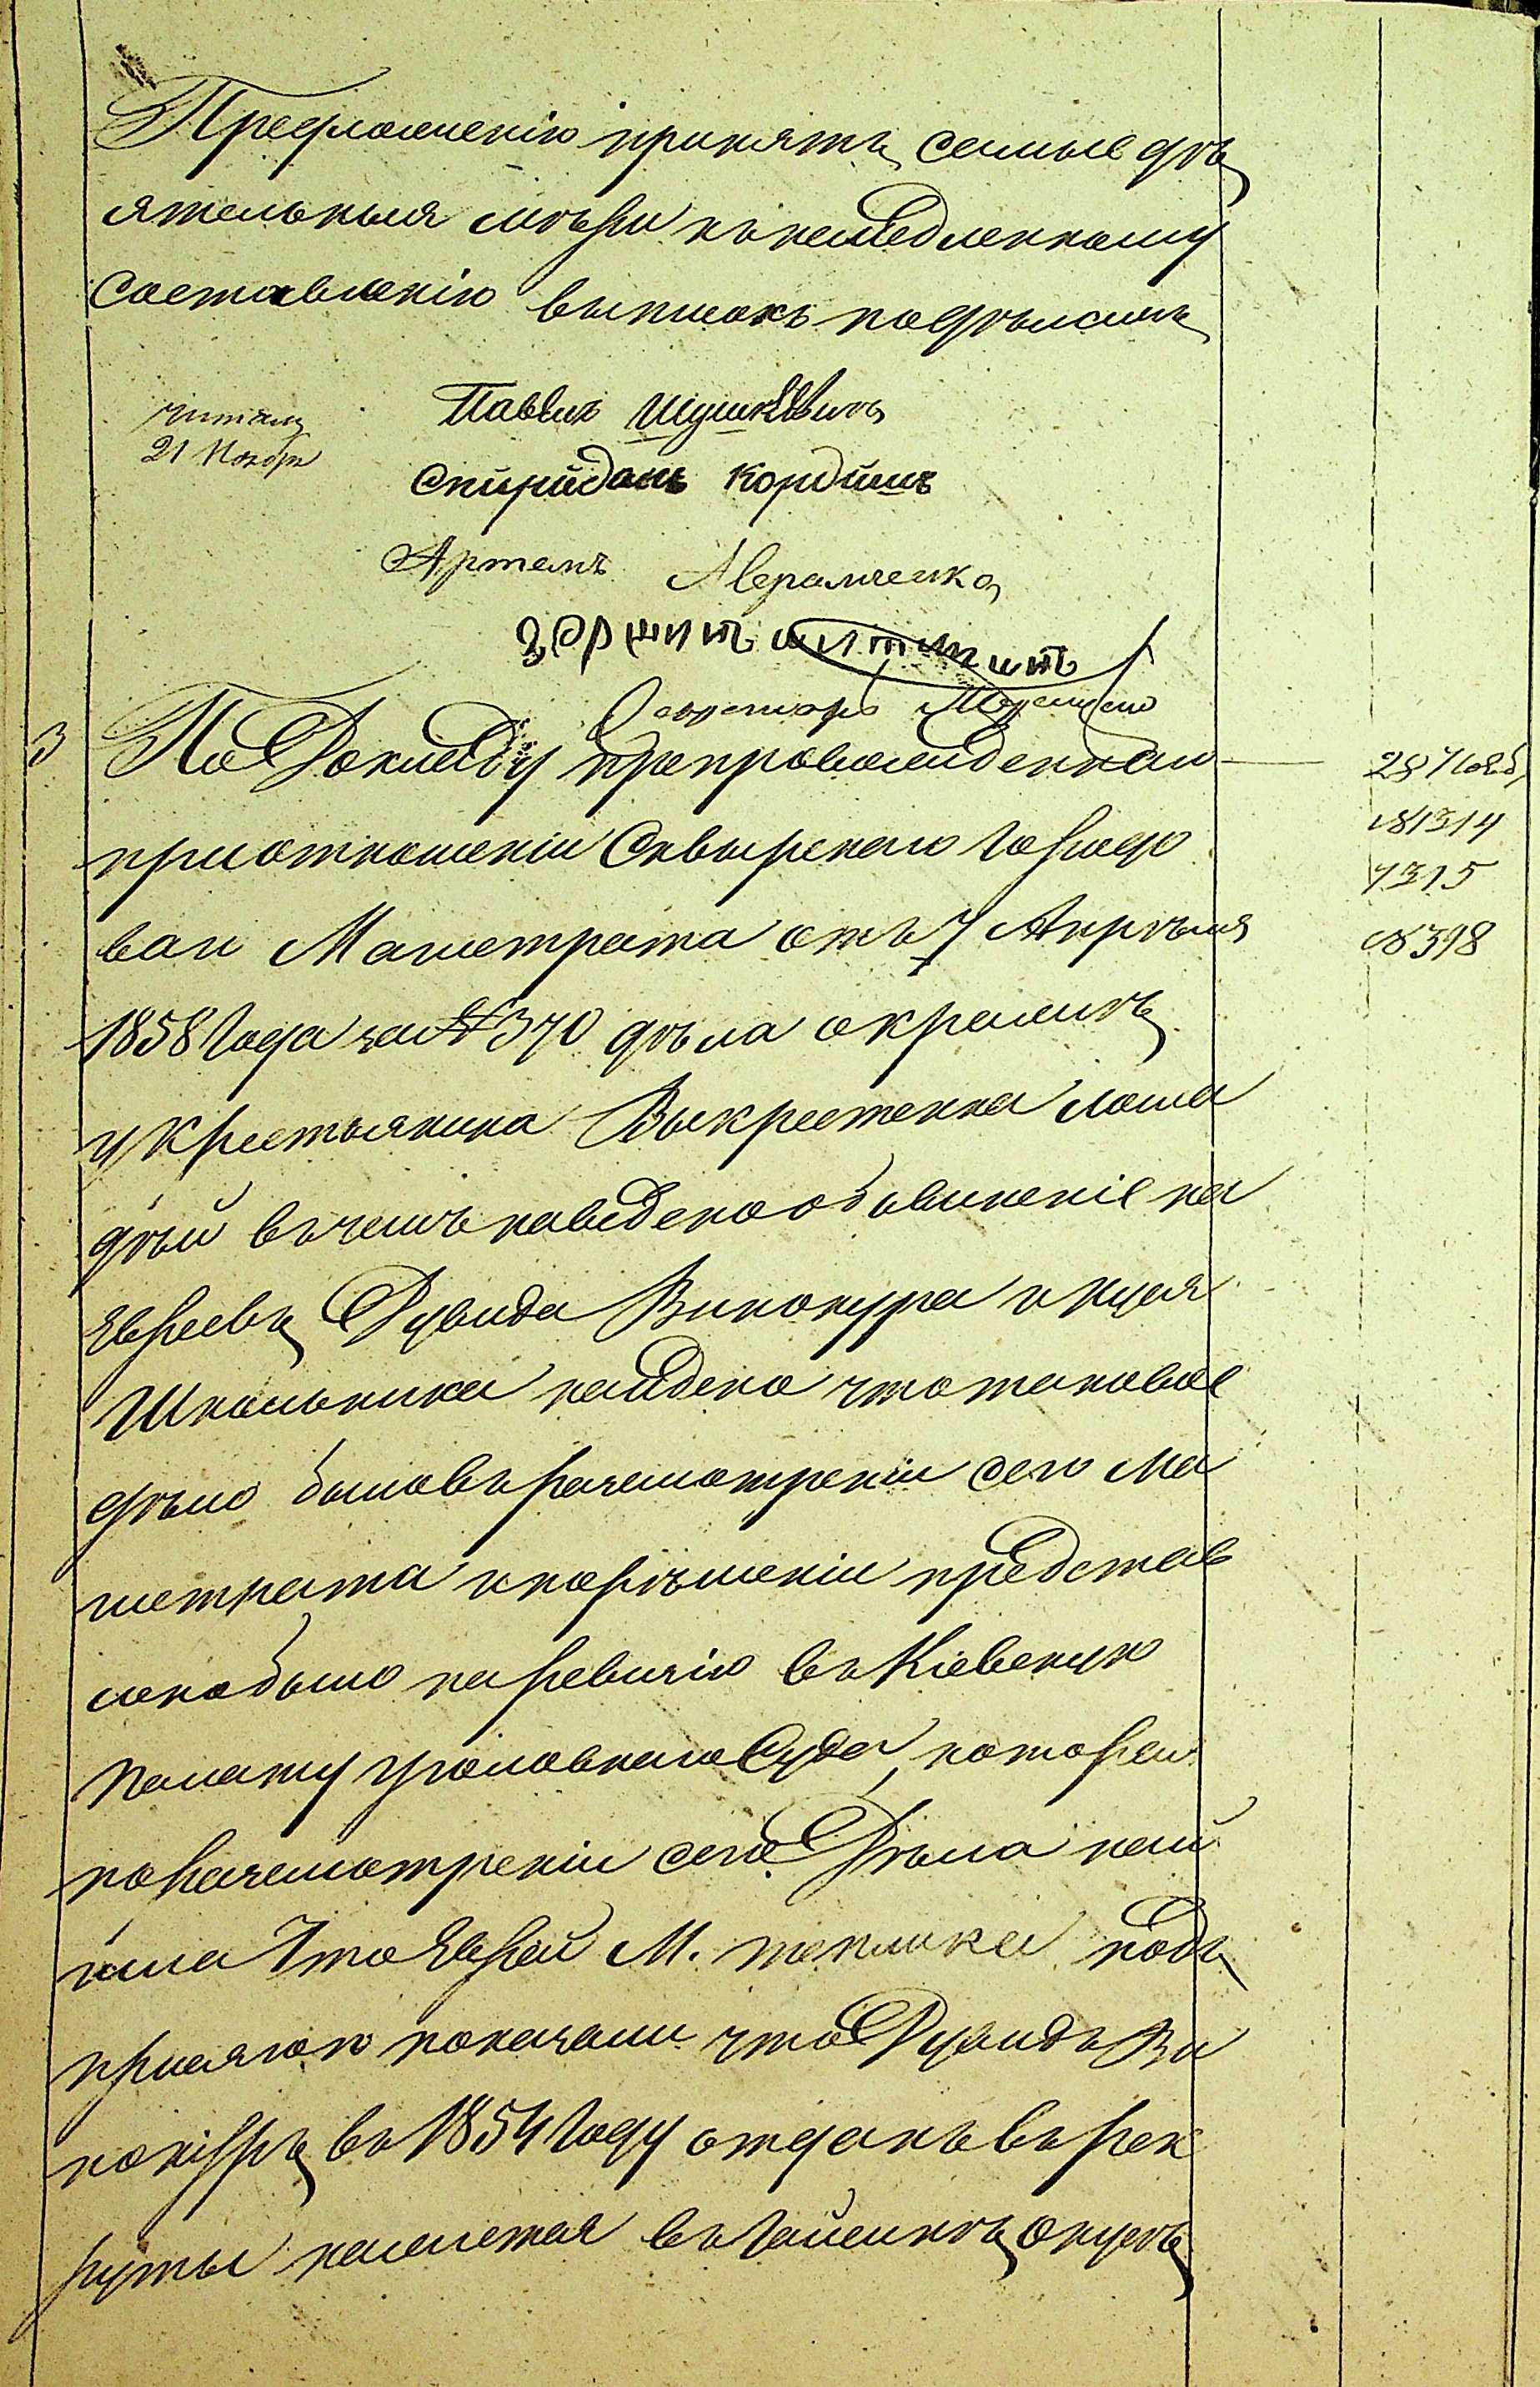 Предложенію принять самые дѣ
ятельныя мѣры къ немедленному
составленію выписокъ по дѣламъ
Читалъ
21 Ноябр
Павелъ
Спиридонъ Кордишъ
Артемъ Аврамченко
Секретарь
3 По Докладу препровожденнаго
28 Нояб
№1314
1315
№398
при отношеніи Сквырскаго Городо
ваго Магистрата отъ 7 Апрѣля
1858 Года за № 370 дѣла о кражѣ
у Крестьянина Выкрестенка лоша
дѣй въ чемъ наведено обвиненіе на
Евреевъ Дувида Винокура и Куся
Школьника найдено что таковое
дѣло было въ разсмотреніи сего Ма
гистрата и по рѣшеніи представ
лено было на ревизію въ Кіевскую
Палату Уголовнаго Суда, которая
по разсмотреніи сего Дѣла най
шла что Еврей М. теплика подъ
присягою показали что Дувидъ Ви
нокуръ въ 1854 Году отданъ въ рек
руты касается въ Гайсинѣ, о Кусѣ